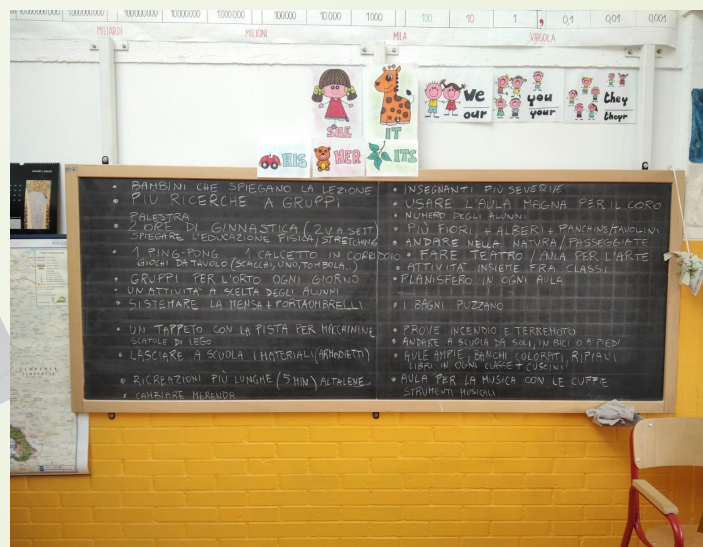 MILIARDI
MILIONI
100000
10000
1000
100
10
1
,
0,1
0,01
0,001
MILA
VIRGOLA
SHE
IT
we
our
you
your
they
HIS
HER
ITS
• BAMBINI CHE SPIEGANO LA LEZIONE
• PIÙ RICERCHE A GRUPPI
PALESTRA
• 2 ORE DI GINNASTICA (2 V A SETT
SPIEGARE L'EDUCAZIONE FISICA/STRETCHING
• 1 PING-PONG / 1 CALCETTO IN CORRIDOIO
GIOCHI DA TAVOLO (SCACCHI, UNO, TOMBOLA..)
• GRUPPI PER L'ORTO OGNI GIORNO
• UN ATTIVITÀ A SCELTA DEGLI ALUNNI
• SISTEMARE LA MENSA + PORTAOMBRELLI
• UN TAPPETO CON LA PISTA PER MACCHININE
SCATOLE DI LEGO
• LASCIARE A SCUOLA I MATERIALI (ARMADIETTI)
• RICREAZIONI PIÙ LUNGHE (5 MIN) ALTALENE
• CAMBIARE MERENDA
• INSEGNANTI PIÙ SEVERI/E
• USARE L'AULA MAGNA PER IL CORO
• NUMERO DEGLI ALUNNI
• PIÙ FIORI, + ALBERI + PANCHINE/TAVOLINI
• ANDARE NELLA NATURA/PASSEGGIATE
• FARE TEATRO / AULA PER L'ARTE
• ATTIVITÀ INSIEME FRA CLASSI
• PLANISFERO IN OGNI AULA
• I BAGNI PUZZANO
• PROVE INCENDIO E TERREMOTO
• ANDARE A SCUOLA DA SOLI, IN BICI O A PIEDI
• AULE AMPIE, BANCHI COLORATI, RIPIANI
LIBRI IN OGNI CLASSE + CUSCINI
• AULA PER LA MUSICA CON LE CUFFIE
STRUMENTI MUSICALI